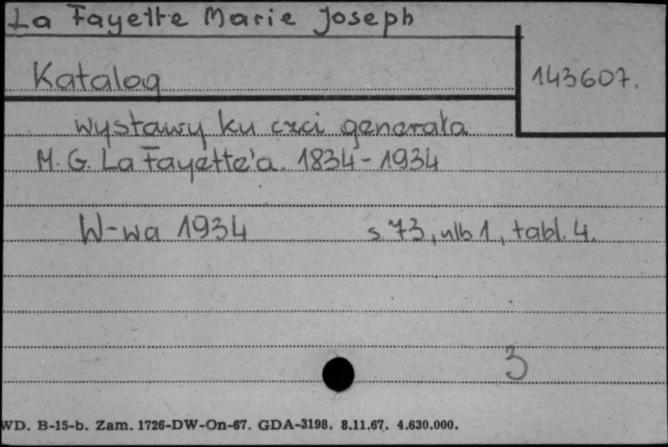 La Fayette Marie Joseph
Katalog
143607.
wystawy ku czci generała
M. G. La Fayette'a. 1834-1934
W-wa 1934 s. 73, nlb 1, tabl. 4.
3
WD. B-15-b. Zam. 1726-DW-On-67. GDA-3198. 8.11.67. 4.630.000.